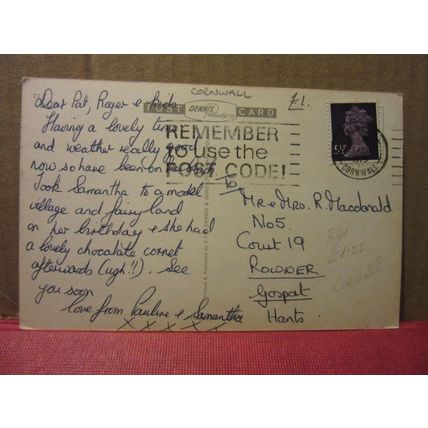 CORNWALL
£1.
POST DENNIS CARD
Dear Pat, Roger & kids
Having a lovely time
and weather really good
now so have been on the
Took Samantha to a model
village and fairy land
on her birthday & she had
a lovely chocolate cornet
afterwards (ugh!!). See
you soon
love from Pauline & Samantha
X X X X
REMEMBER
to use the
POST CODE!
5½P
CORNWALL
To
Mr & Mrs. R. Macdonald
No 5.
Court 19
ROWNER
Gosport
Hants.
£1.25
CORNWALL